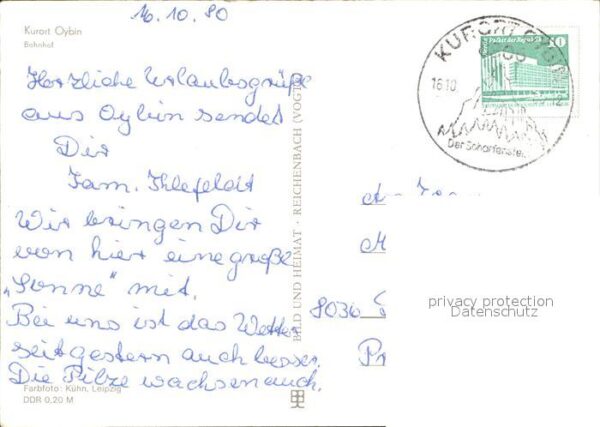 16.10.80
Kurort Oybin
Bahnhof
Herzliche Urlaubsgrüße
aus Oybin sendet
Dir
Fam. Ihlefeldt
Wir bringen Dir
von hier eine große
„Sonne" mit.
Bei uns ist das Wetter
seit gestern auch besser.
Die Pilze wachsen auch.
Farbfoto: Kühn, Leipzig
DDR 0,20 M
BILD UND HEIMAT · REICHENBACH (VOGTL
KURORT OYBIN
16.10.
Der Scharfenstein
Palast der Republik
10
8036
privacy protection
Datenschutz